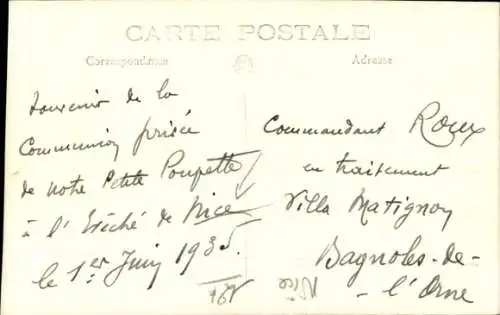 CARTE POSTALE
Correspondance
Adresse
Souvenir de la
Communion privée
de notre Petite Poupette
à l'Evêché de Nice
le 1er Juin 1935.
Commandant Roux
en traitement
Villa Matignon
Bagnoles-de-
-l'Orne
Nice